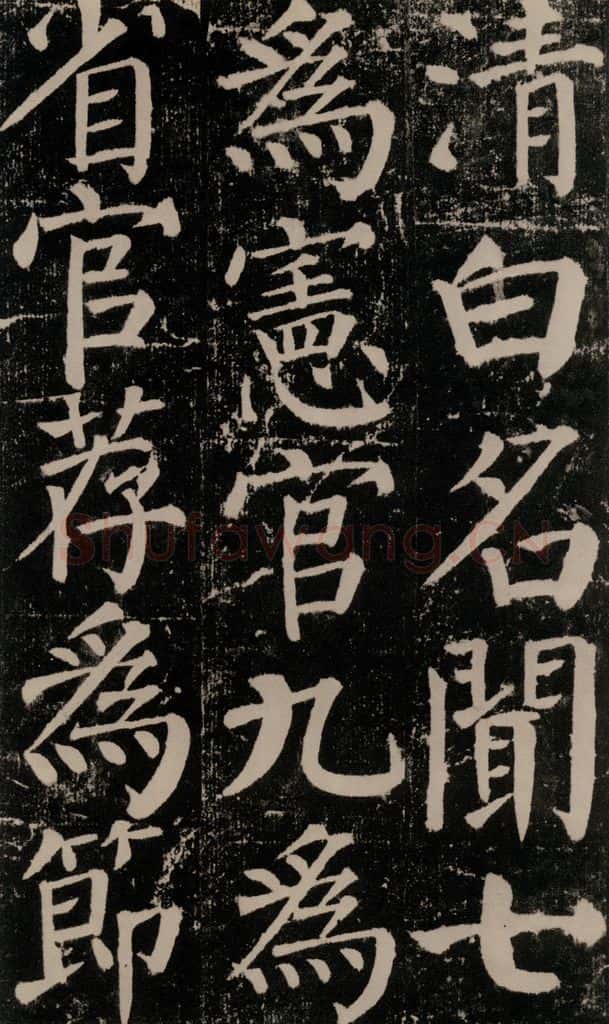 清白名聞七
為憲官九為
省官荐為節
Shufawang.CN